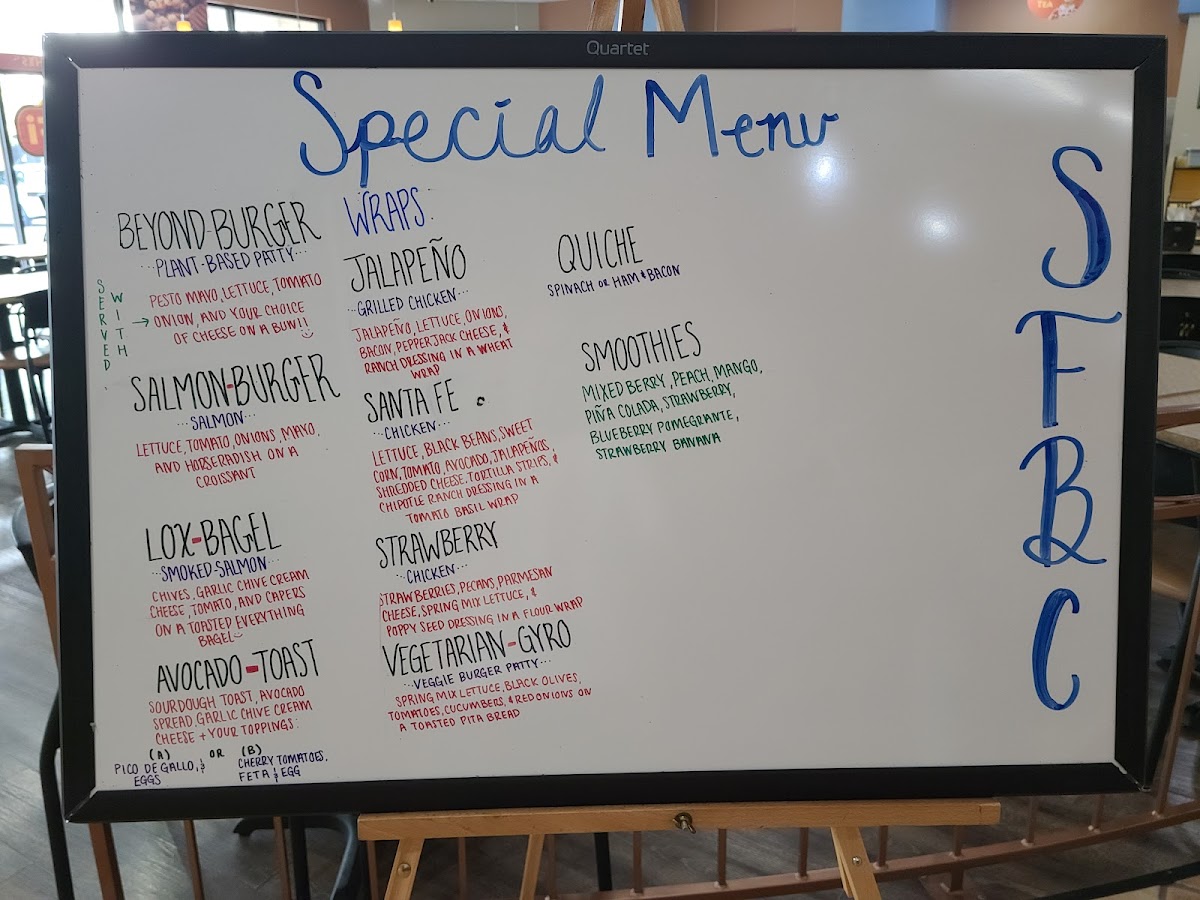 Quartet
Special Menu
BEYOND-BURGER
···PLANT-BASED PATTY···
SERVED
WITH
→
PESTO MAYO, LETTUCE, TOMATO
ONION, AND YOUR CHOICE
OF CHEESE ON A BUN!!
SALMON-BURGER
···SALMON···
LETTUCE, TOMATO, ONIONS, MAYO,
AND HORSERADISH ON A
CROISSANT
LOX-BAGEL
··SMOKED-SALMON···
CHIVES, GARLIC CHIVE CREAM
CHEESE, TOMATO, AND CAPERS
ON A TOASTED EVERYTHING
BAGEL
AVOCADO-TOAST
SOURDOUGH TOAST, AVOCADO
SPREAD, GARLIC CHIVE CREAM
CHEESE + YOUR TOPPINGS:
(A) OR (B)
PICO DE GALLO, &
EGGS
CHERRY TOMATOES,
FETA & EGG
WRAPS:
JALAPEÑO
··GRILLED CHICKEN···
JALAPEÑO, LETTUCE, ONIONS,
BACON, PEPPERJACK CHEESE, &
RANCH DRESSING IN A WHEAT
WRAP
SANTA FE
··CHICKEN···
LETTUCE, BLACK BEANS, SWEET
CORN, TOMATO, AVOCADO, JALAPEÑOS,
SHREDDED CHEESE, TORTILLA STRIPS, &
CHIPOTLE RANCH DRESSING IN A
TOMATO BASIL WRAP
STRAWBERRY
··CHICKEN···
STRAWBERRIES, PECANS, PARMESAN
CHEESE, SPRING MIX LETTUCE, &
POPPY SEED DRESSING IN A FLOUR WRAP
VEGETARIAN-GYRO
··VEGGIE BURGER PATTY···
SPRING MIX LETTUCE, BLACK OLIVES,
TOMATOES, CUCUMBERS, & RED ONIONS ON
A TOASTED PITA BREAD
QUICHE
SPINACH OR HAM & BACON
SMOOTHIES
MIXED BERRY, PEACH, MANGO,
PIÑA COLADA, STRAWBERRY,
BLUEBERRY POMEGRANTE,
STRAWBERRY BANANA
S
F
B
C
TEA